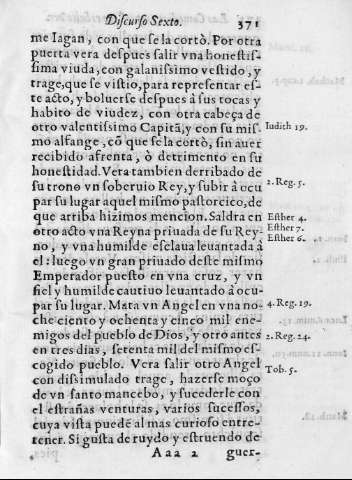 Discurso Sexto. 371
me Iagan, con que se la cortò. Por otra
puerta vera despues salir vna honestis-
sima viuda, con galanissimo vestido, y
trage, que se vistio, para representar es-
te acto, y boluerse despues à sus tocas y
habito de viudez, con otra cabeça de
otro valentissimo Capitã, y con su mis-
mo alfange, cõ que se la cortò, sin auer
recibido afrenta, ò detrimento en su
honestidad. Vera tambien derribado de
su trono vn soberuio Rey, y subir à ocu
par su lugar aquel mismo pastorcico, de
que arriba hizimos mencion. Saldra en
otro acto vna Reyna priuada de su Rey-
no, y vna humilde esclaua leuantada à
el: luego vn gran priuado deste mismo
Emperador puesto en vna cruz, y vn
fiel y humilde cautiuo leuantado à ocu-
par su lugar. Mata vn Angel en vna no-
che ciento y ochenta y cinco mil ene-
migos del pueblo de Dios, y otro antes
en tres dias, setenta mil del mismo es-
cogido pueblo. Vera salir otro Angel
con dissimulado trage, hazerse moço
de vn santo mancebo, y sucederle con
el estrañas venturas, varios sucessos,
cuya vista puede al mas curioso entre-
tener. Si gusta de ruydo y estruendo de
Aaa 2 guer-
Iudith 19.
2. Reg. 5.
Esther 4.
Esther 7.
Esther 6.
4. Reg. 19.
2. Reg. 24.
Tob. 5.